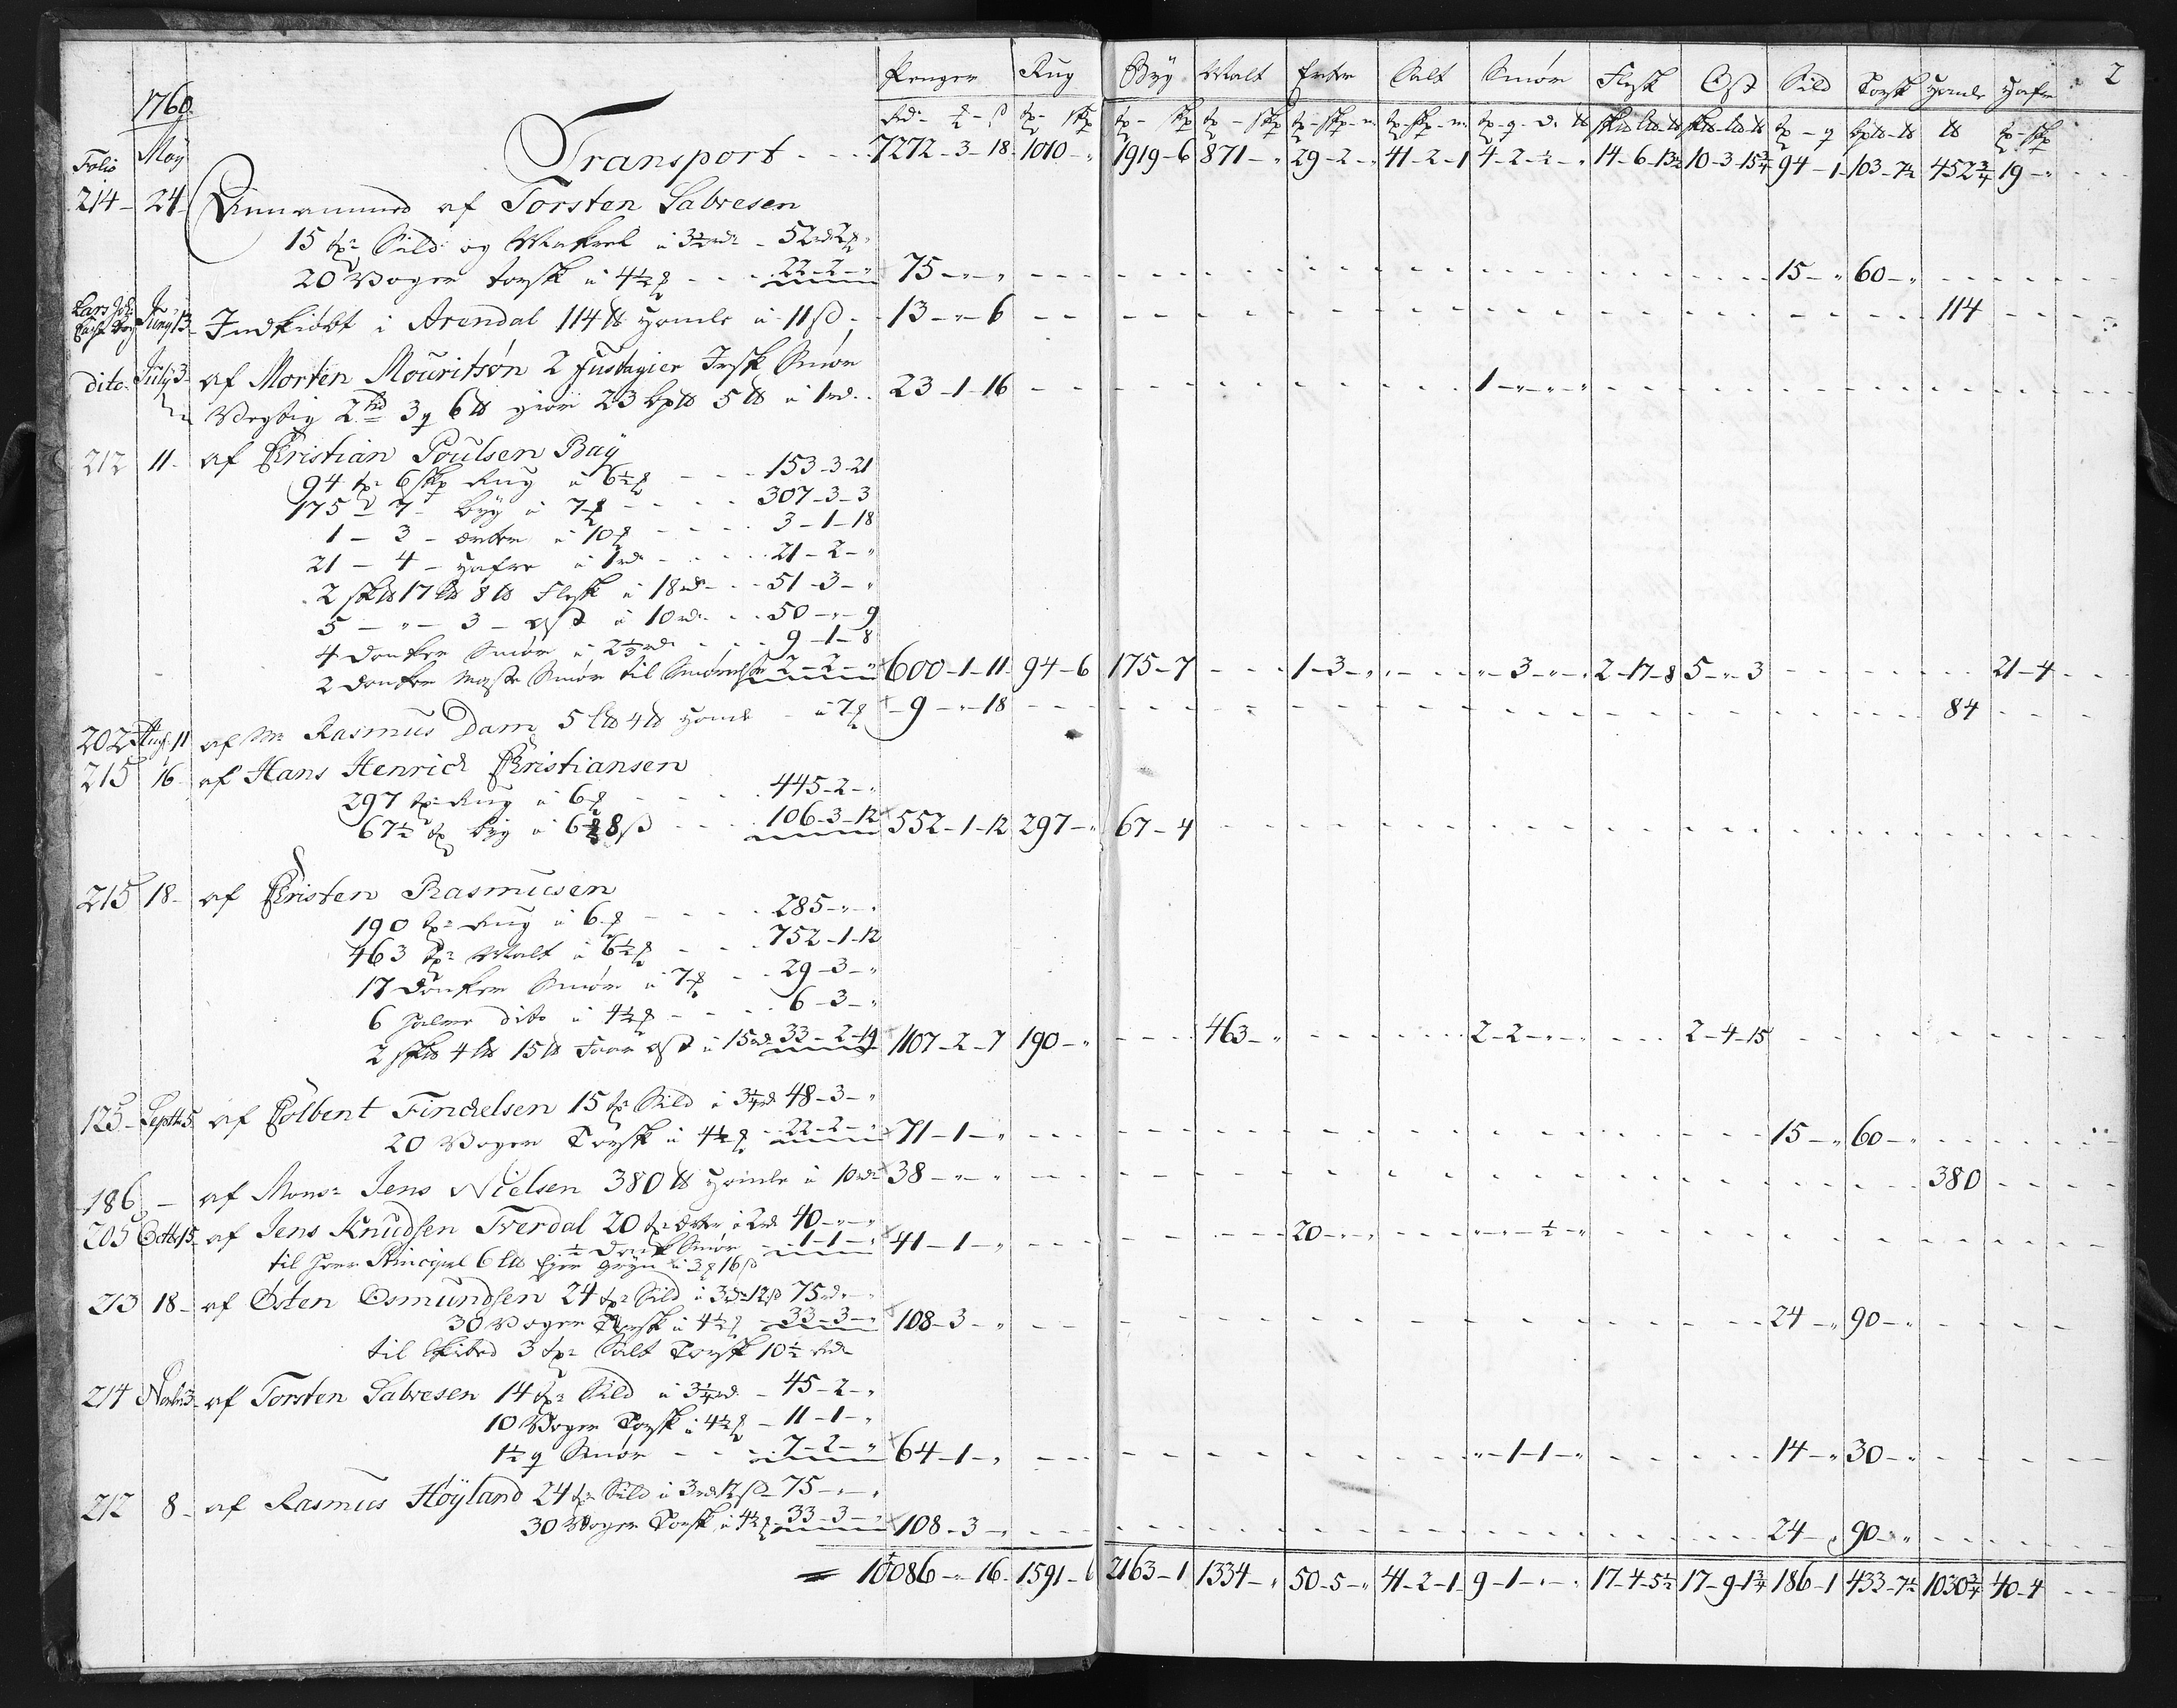 Penger Rug Byg Malt Erter Salt Smør Flesk Ost Sild Torsk Homle Hafre 2
1760
Folio May Transport - - - 7272-3-18 1010-" 1919-6 871-" 29-2-" 41-2-1 4-2-½-" 14-6-13½ 10-3-15¾ 94-1 103-7½ 452¾ 19-"
214 24 Annammed af Torsten Sabresen
15 tr Sild og Makrel a 3½ rdr - 52 rd 2
20 Voger torsk a 4½ - - - 22-2-" 75-"-" 15-" 60-"
Juny 13 Indkiøbt i Arendal 114 ℔ Homle a 11 ß - 13-"-6 114
dito July 3 af Morten Mouritsøn 2 fustagier Irsk Smør
Vegtig 2 3 6 ℔ giør 23 5 ℔ a 1 rd 23-1-16 1-"-"-"
212 11 af Christian Poulsen Bay
94 tr 6 skp Rug a 6½ - - - 153-3-21
175 - 7 - byg a 7 - - - 307-3-3
1 - 3 - erter a 10 - - - 3-1-18
21 - 4 - Hafre a 1 rd - - - 21-2-"
2 sk℔ 17 l℔ 8 ℔ Flesk a 18 rd - - 51-3-"
5 - " - 3 - ost a 10 rd - - 50-"-9
4 Smør a 2⅓ rd - - - 9-1-8
2 Smør til 2-2-" 600-1-11 94-6 175-7 1-3-" "-3-"-" 2-17-8 5-"-3 21-4
202 Aug 11 af Mr Rasmus Dam 5 l℔ 4 ℔ Homle - a 7 9-"-18 84
215 16 af Hans Henrich Christiansen
297 tr Rug a 6 - - - 445-2-"
67½ tr byg a 6 8 ß - - - 106-3-12 552-1-12 297-" 67-4
215 18 af Christen Rasmusen
190 tr Rug a 6 - - - 285-"-"
463 tr Malt a 6½ - - - 752-1-12
17 Smør a 7 - - 29-3-"
6 halve dito a 4½ - - - 6-3-"
2 sk℔ 4 l℔ 15 ℔ Faar ost a 15 rd 33-2-19 1107-2-7 190-" 463-" 2-2-"-" 2-4-15
125 Septbr 5 af Colbent Finckelsen 15 tr Sild a 3¼ rd 48-3-"
20 Voger Torsk a 4½ - 22-2-" 71-1-" 15-" 60-"
186 - af Monsr Jens Nielsen 380 ℔ Homle a 10 rdr 38-"-" 380
205 Octbr 15 af Jens Knudsen Tverdal 20 tr Erter a 2 rd 40-"-"
½ Smør - 1-1-" 41-1-" 20-"-" "-"-½-"
til 6 l℔ gryn a 3 16 ß
213 18 af Østen Osmundsen 24 tr Sild a 3 rdr 12 ß 75 rd
30 Voger Torsk a 4½ - 33-3-" 108-3-" 24-" 90-"
til 3 tr Salt Torsk 10½ rdr
214 Novbr 3 af Torsten Sabresen 14 tr Sild a 3¼ rd - 45-2-"
10 Voger Torsk a 4½ - 11-1-"
1½ Smør - - - 7-2-" 64-1-" "-1-1-" 14-" 30-"
212 8 af Rasmus Høyland 24 tr Sild a 3 rd 12 ß 75-"-"
30 Voger Torsk a 4½ 33-3-" 108-3-" 24-" 90-"
10086-"-16 1591-6 2163-1 1334-" 50-5-" 41-2-1 9-1-"-" 17-4-5½ 17-9-1¾ 186-1 433-7½ 1030¾ 40-4